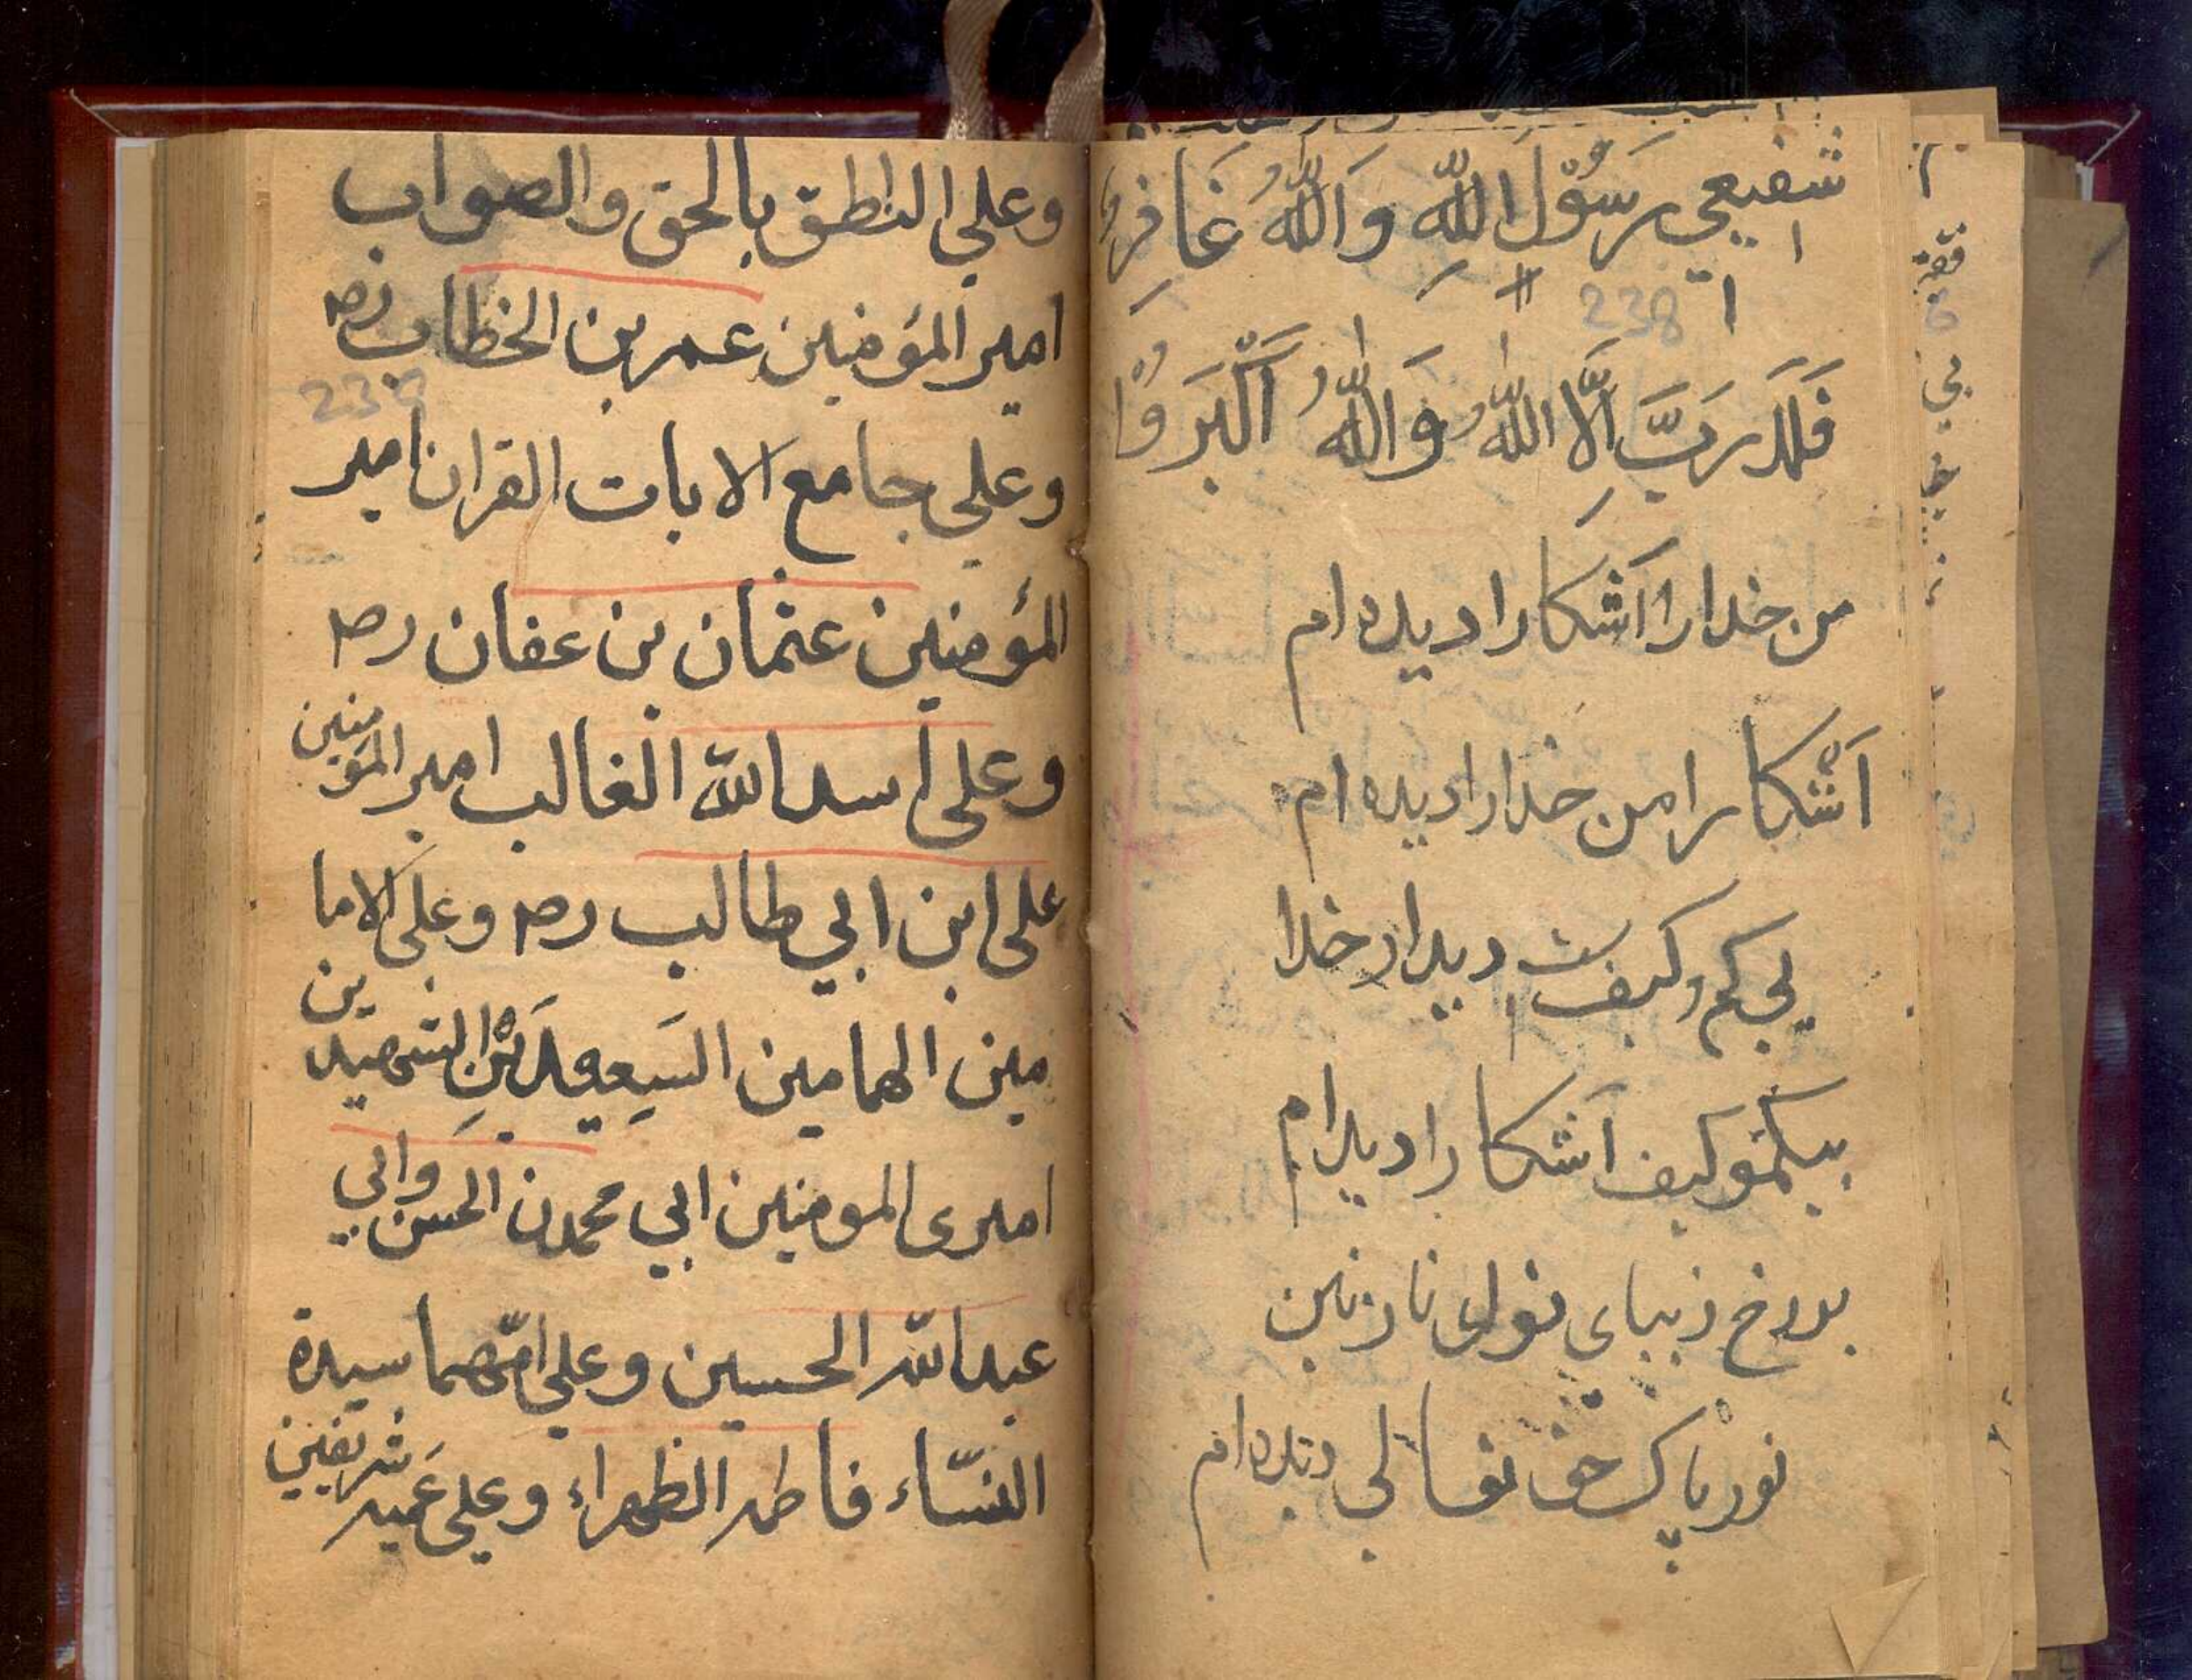 شفيعي رسول الله والله غافر
238
فلد رب الا الله والله اكبر
من خدا را آشکارا دیده ام
آشکارا من خدا را دیده ام
بی کم و کیفست دیدار خدا
بیکمو کیف آشکارا دیدام
بررخ زیبای نازنین
نور پاک حق تعالی دیده ام
وعلي الناطق بالحق والصواب
امير المؤمنين عمر بن الخطاب رضه
وعلي جامع الايات القران امير
المؤمنين عثمان بن عفان رضه
وعلى اسد الله الغالب امير المؤمنين
على ابن ابي طالب رضه وعلى الاما
مين الهمامين السعيدين الشهيدين
اميرى المومنين ابي محمدن الحسن وابي
عبد الله الحسين وعلي امهما سيدة
النساء فاطمه الظهراء وعلي عميه شريفين